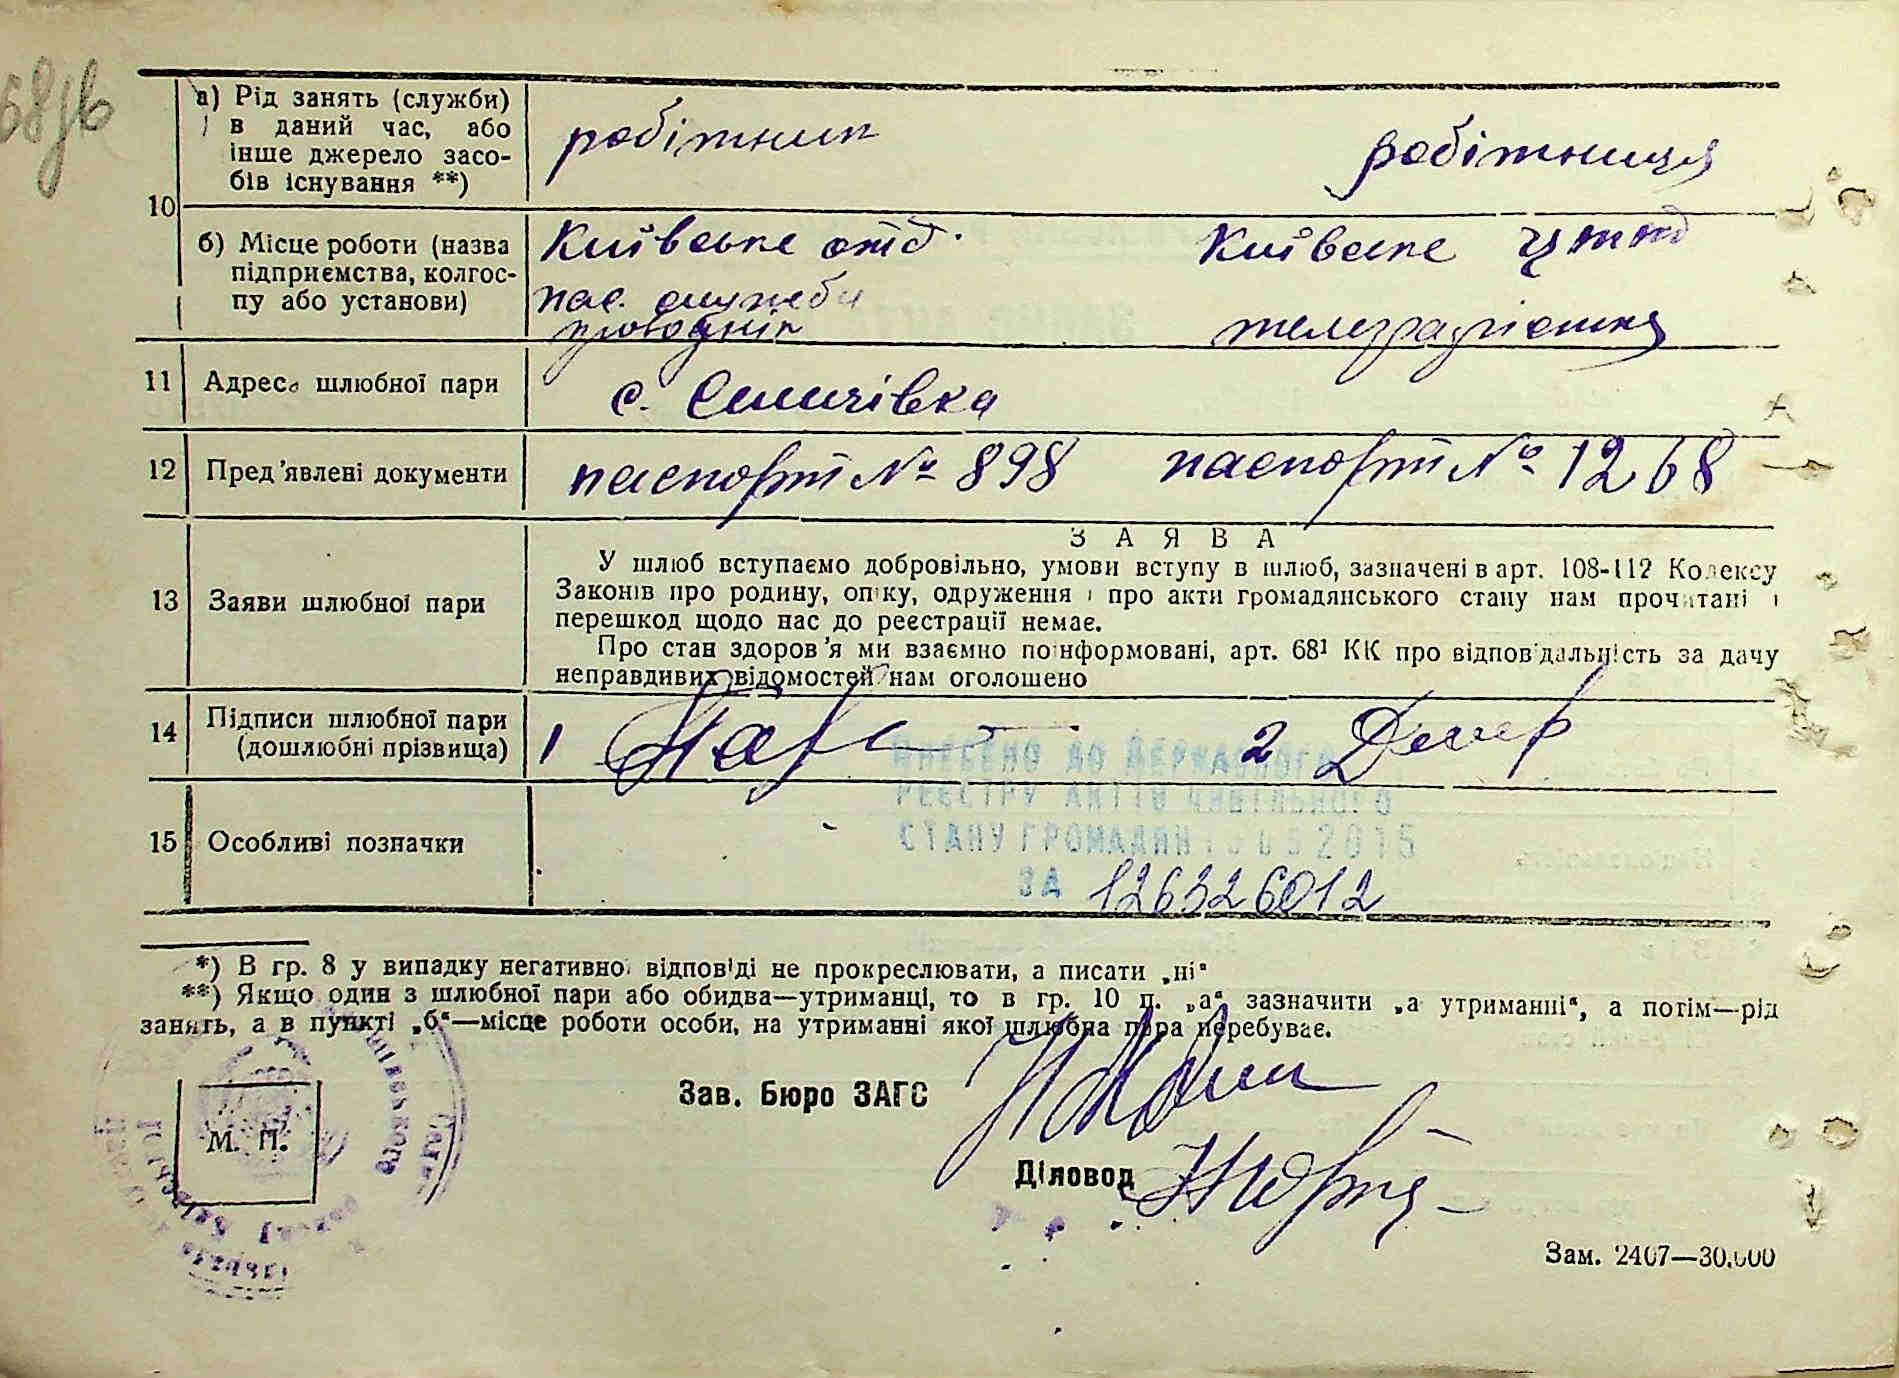 а) Рід занять (служби)
в даний час, або
інше джерело засо-
бів існування **)
робітник
робітниця
10
б) Місце роботи (назва
підприємства, колгос-
пу або установи)
Київське отд.
пас. служби
Київське
11
Адреса шлюбної пари
с.
12
Пред'явлені документи
паспорт № 898
паспорт № 1268
13
Заяви шлюбної пари
ЗАЯВА
У шлюб вступаємо добровільно, умови вступу в шлюб, зазначені в арт. 108-112 Кодексу
Законів про родину, опіку, одруження і про акти громадянського стану нам прочитані і
перешкод щодо нас до реєстрації немає.
Про стан здоров'я ми взаємно поінформовані, арт. 68¹ КК про відповідальність за дачу
неправдивих відомостей нам оголошено
14
Підписи шлюбної пари
(дошлюбні прізвища)
1
2
ВНЕСЕНО ДО ДЕРЖАВНОГО
РЕЄСТРУ АКТІВ ЦИВІЛЬНОГО
СТАНУ ГРОМАДЯН 2015
ЗА 126326012
15
Особливі позначки
*) В гр. 8 у випадку негативної відповіді не прокреслювати, а писати „ні“
**) Якщо один з шлюбної пари або обидва—утриманці, то в гр. 10 п. „а“ зазначити „а утриманні“, а потім—рід
занять, а в пункті „б“—місце роботи особи, на утриманні якої шлюбна пара перебуває.
М. П.
Зав. Бюро ЗАГС
Діловод
Зам. 2407—30.000